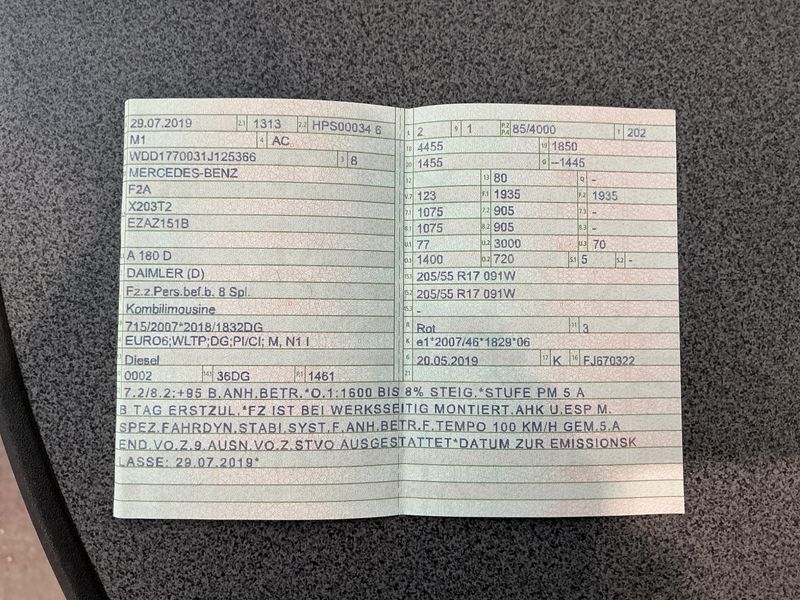 29.07.2019 2.1 1313 2.2 HPS00034 6
M1 4 AC
WDD1770031J125366 3 8
MERCEDES-BENZ
F2A
X203T2
EZAZ151B
A 180 D
DAIMLER (D)
Fz.z.Pers.bef.b. 8 Spl.
Kombilimousine
715/2007*2018/1832DG
EURO6;WLTP;DG;PI/CI; M, N1 I
Diesel
0002 14.1 36DG P.1 1461
L 2 9 1 P.2 P.4 85/4000 T 202
18 4455 19 1850
20 1455 G --1445
12 - 13 80 Q -
V.7 123 F.1 1935 F.2 1935
7.1 1075 7.2 905 7.3 -
8.1 1075 8.2 905 8.3 -
U.1 77 U.2 3000 U.3 70
O.1 1400 O.2 720 S.1 5 S.2 -
15.1 205/55 R17 091W
15.2 205/55 R17 091W
15.3 -
R Rot 11 3
K e1*2007/46*1829*06
6 20.05.2019 17 K 16 FJ670322
21
7.2/8.2:+95 B.ANH.BETR.*O.1:1600 BIS 8% STEIG.*STUFE PM 5 A
B TAG ERSTZUL.*FZ IST BEI WERKSSEITIG MONTIERT.AHK U.ESP M.
SPEZ.FAHRDYN.STABI.SYST.F.ANH.BETR.F.TEMPO 100 KM/H GEM.5.A
END.VO.Z.9.AUSN.VO.Z.STVO AUSGESTATTET*DATUM ZUR EMISSIONSK
LASSE: 29.07.2019*